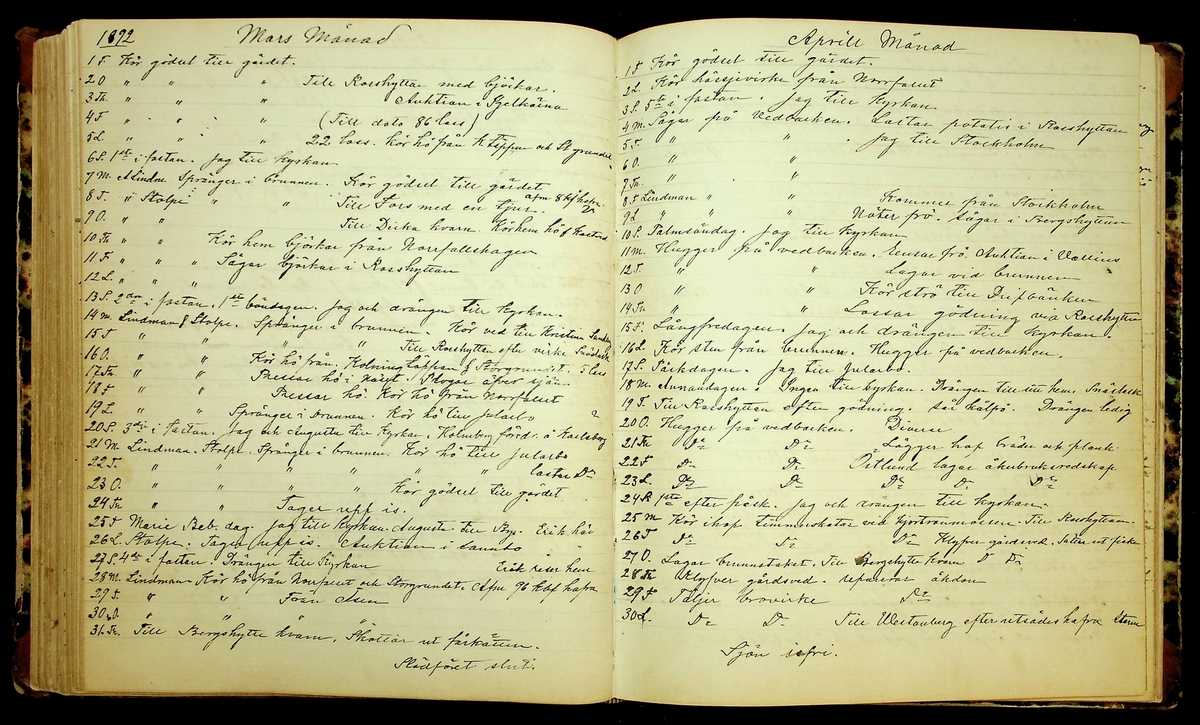 1892 Mars Månad
1 T Kör gödsel till gärdet.
2 O " " " Till Rosshyttan med björkar.
3 Th. " " " Auktion i
4 F " " " " (Till dato 86 lass)
5 L " " " 22 lass. Kör hö från och
6 S. 1sta i fastan. Jag till kyrkan
7 M. A Lindm. Spränger i brunnen. Kör gödsel till gärdet
8 T. " Stolpe " " Till Fors med en tjur. afm 8 kbf hafre
9 O. " " Till Dicka kvarn. Kör hem hö
10 Th " " Kör hem björkar från Norrfallshagen
11 F " " " Sågar björkar i Rosshyttan
12 L. " " "
13 S. 2dra i fastan. 1sta böndagen. Jag och drängen till kyrkan.
14 M. Lindman & Stolpe. Spränger i brunnen. Kör ved till Kristina
15 T " " " " Till Rosshyttan efter virke
16 O. " " Kör hö från Storgrundet. 5 lass
17 Th " " Pressar hö. sjön.
18 F " " Pressar hö. Kör hö från Norrfallet
19 L " " Spränger i brunnen. Kör hö till Jularbo
20 S. 3dje i fastan. Jag och Augusta till Kyrkan. Holmberg
21 M. Lindman. Stolpe. Spränger i brunnen. Kör hö till Jularbo
22 T. " " " " " " lastar Do
23 O. " " " " Kör gödsel till gärdet
24 Th " " Tager upp is.
25 F Marie Beb. dag. Jag till Kyrkan. Augusta till By. Erik här
26 L Stolpe. Tager upp is. Auktion i " "
27 S. 4de i fastan. Drängen till Kyrkan Erik reser hem
28 M. Lindman Kör hö från Norrfallet och Storgrundet. Afm 96 kbf hafra
29 T. " " Från
30 O. " "
31 Th. Till Bergshytte kvarn. Skottar ut
Slädföret slut.
Aprill Månad
1 F Kör gödsel till gärdet.
2 L. Kör hässjevirke från Norrfallet
3 S. 5te i fastan. Jag till Kyrkan
4 M. Sågar på Vedbacken. Lastar potatis i Rosshyttan
5 T. " " . Jag till Stockholm
6 O. " "
7 Th. " . "
8 F Lindman " " Kommer från Stockholm
9 L " " " Nöter frö. Sågar i Bergshyttan
10 S. Palmsöndag. Jag till Kyrkan
11 M. Hugger på vedbacken. Rensar frö. Auktion i Vallens
12 T. " " Lagar vid brunnen
13 O " " Kör strö till Drifbänken
14 Th " " Lossar gödning via Rosshyttan
15 F. Långfredagen. Jag och drängen till Kyrkan.
16 L. Kör sten från brunnen. Hugger på vedbacken.
17 S. Påskdagen. Jag till Jularbo.
18 M. Annandagen. Ingen till kyrkan. Drängen till sitt hem. Snöslask
19 T. Till Rosshyttan efter gödning. sår kålfrö. Drängen ledig
20 O. Hugger på vedbacken. Diverse
21 Th Do Do Lägger hop bräder och plank
22 F Do Do Östlund lagar åkerbruksredskap
23 L Do Do Do Do Do
24 S. 1sta efter påsk. Jag och drängen till kyrkan.
25 M Kör ihop timmerstockar vid Till Rosshyttan.
26 T Do Do Do Klyfver gärdsved. Sätter ut fiske
27 O. Lagar brunnstaket. Till Bergshytte kvarn D Do
28 Th Klyfver gärdsved. reparerar åkdon
29 F Täljer brovirke Do
30 L. Do Do Till Westanberg efter utsädeshafra Storm
Sjön isfri.